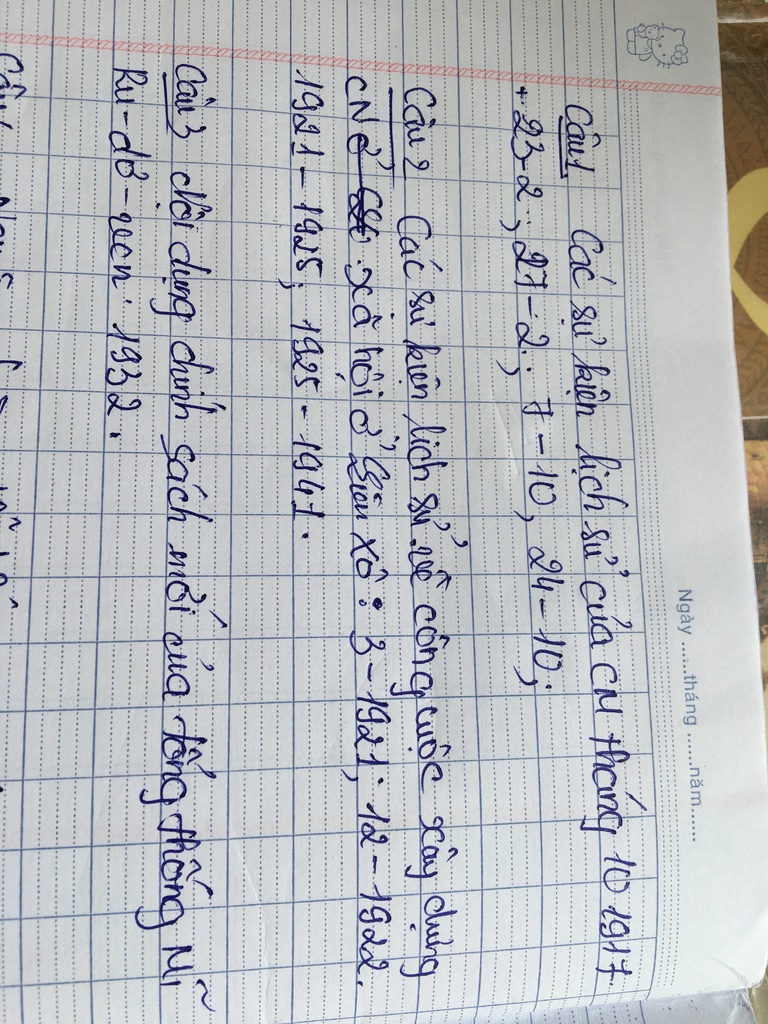 Ngày ..... tháng ..... năm .....
Câu 1 Các sự kiện lịch sử của CN tháng 10 1917
+ 23-2; 27-2; 7-10, 24-10;
Câu 2 Các sự kiện lịch sử về công cuộc xây dựng
CN ở xã hội ở Liên Xô: 3-1921; 12-1922.
1921-1925; 1925-1941.
Câu 3 Nội dung chính sách mới của tổng thống Mĩ
Ru-dơ-ven: 1932.